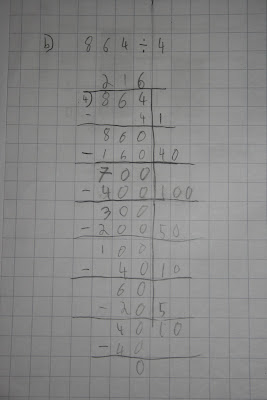 b) 864÷4
216
4)864
- 4 1
860
- 160 40
700
- 400 100
300
- 200 50
100
- 40 10
60
- 20 5
40 10
- 40
0